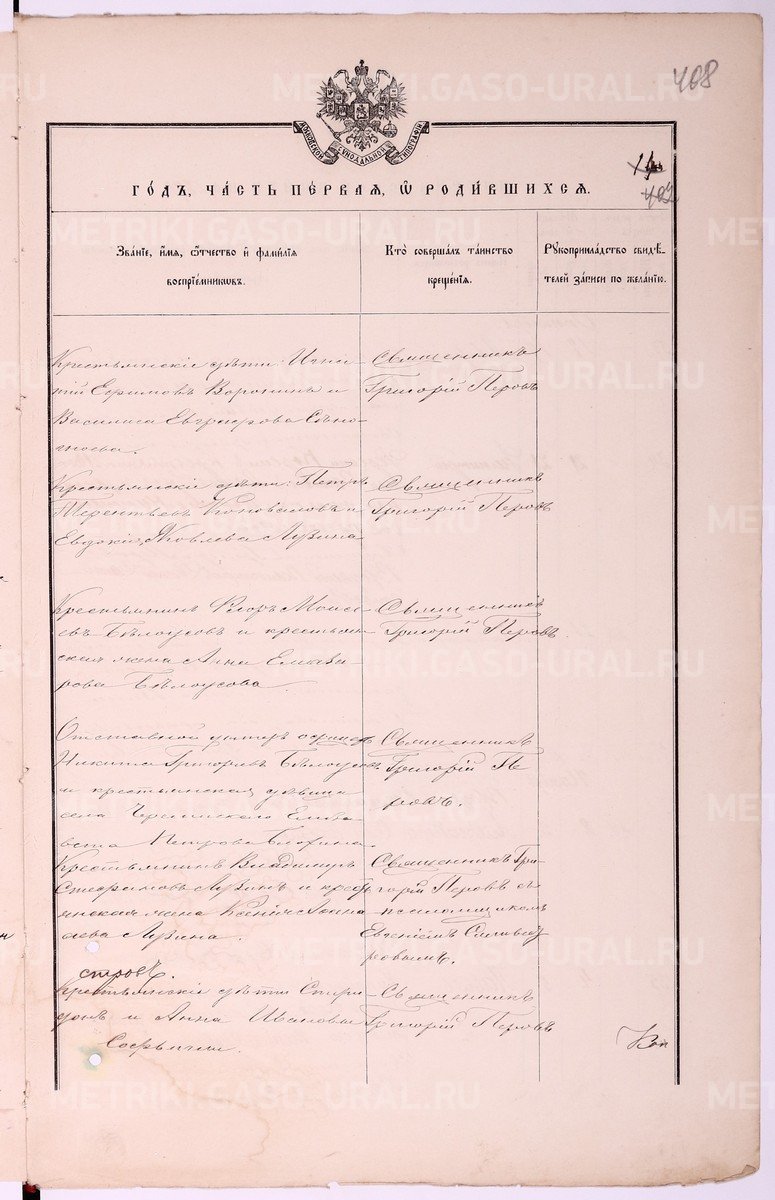 408
МОСКОВСКОЙ СѴНОДАЛЬНОЙ ТИПОГРАФІИ
402
ГО́ДЪ, ЧА́СТЬ ПЕ́РВАЯ, Ѿ РОДИ́ВШИХСЯ.
Зва́нїе, и́мя, ѻ҆́тчество и҆ фами́лїя
воспрїе́мникѡвъ.
Кто̀ соверша́лъ та́инство
креще́нїя.
Рꙋкоприкла́дство свидѣ́-
телей за́писи по жела́нїю.
Крестьянскіе дѣти: Игна-
тій Ефимовъ Воронинъ и
Василиса Евграфова
Священникъ
Григорій Перовъ
Крестьянскіе дѣти: Петръ
Терентьевъ Коноваловъ и
Евдокія Яковлева Лузина
Священникъ
Григорій Перовъ
Крестьянинъ Моисе-
евъ Бѣлоусовъ и крестьян-
ская жена Анна Елиза-
рова Бѣлоусова.
Священникъ
Григорій Перовъ
Отставной унтеръ офицеръ
Никита Григорьевъ Бѣлоусовъ
и крестьянская дѣвица
села Елиза-
вета Петрова Блохина.
Священникъ
Григорій Пе-
ровъ.
Крестьянинъ Владимиръ
Стефановъ Лузинъ и кресть-
янская жена Ксенія
Лузина.
Священникъ Гри-
горій Перовъ съ
псаломщикомъ
Евгеніемъ Сильвест-
ровымъ.
Крестьянскіе дѣти Спири-
донъ и Анна Ивановы
Священникъ
Григорій Перовъ
METRIKI.GASO-URAL.RU